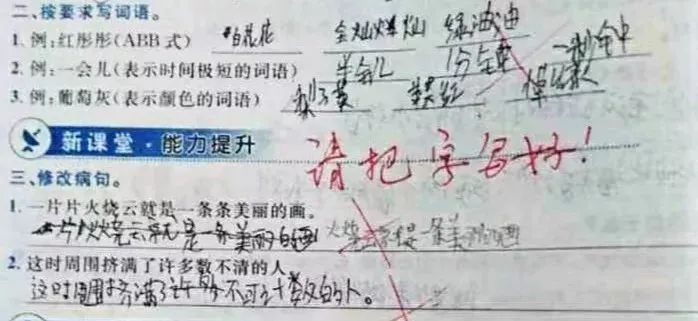 二、按要求写词语。
1. 例:红彤彤(ABB式) 白花花 金灿灿 绿油油
2. 例:一会儿(表示时间极短的词语) 半会儿 1分钟 一秒钟
3. 例:葡萄灰(表示颜色的词语) 梨子黄
新课堂·能力提升
请把字写好!
三、修改病句。
1. 一片片火烧云就是一条条美丽的画。
一片火烧云就是一条美丽的画
2. 这时周围挤满了许多数不清的人
这时周围挤满了许多不可计数的人。